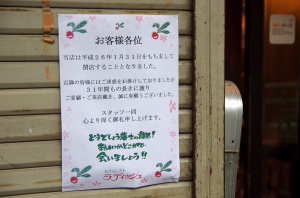 お客様各位
当店は平成26年1月31日をもちまして
閉店することとなりました。
近隣の皆様にはご迷惑をお掛けしておりましたが
31年間もの長きに渡り
ご愛顧・ご来店戴き、誠に有難うございました。
スタッフ一同
心より厚く御礼申し上げます。
またいつかどこかで
会いましょう!!
ラディッシュ